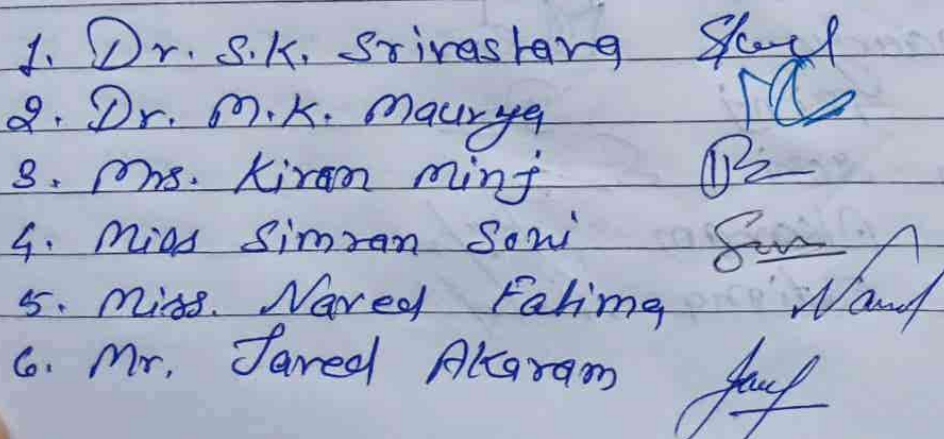 1. Dr. S.K. Srivastava
2. Dr. M.K. Maurya
3. Mrs. Kiran Minj
4. Miss Simran Soni
5. Miss. Naved Fatima
6. Mr. Javed Akaram